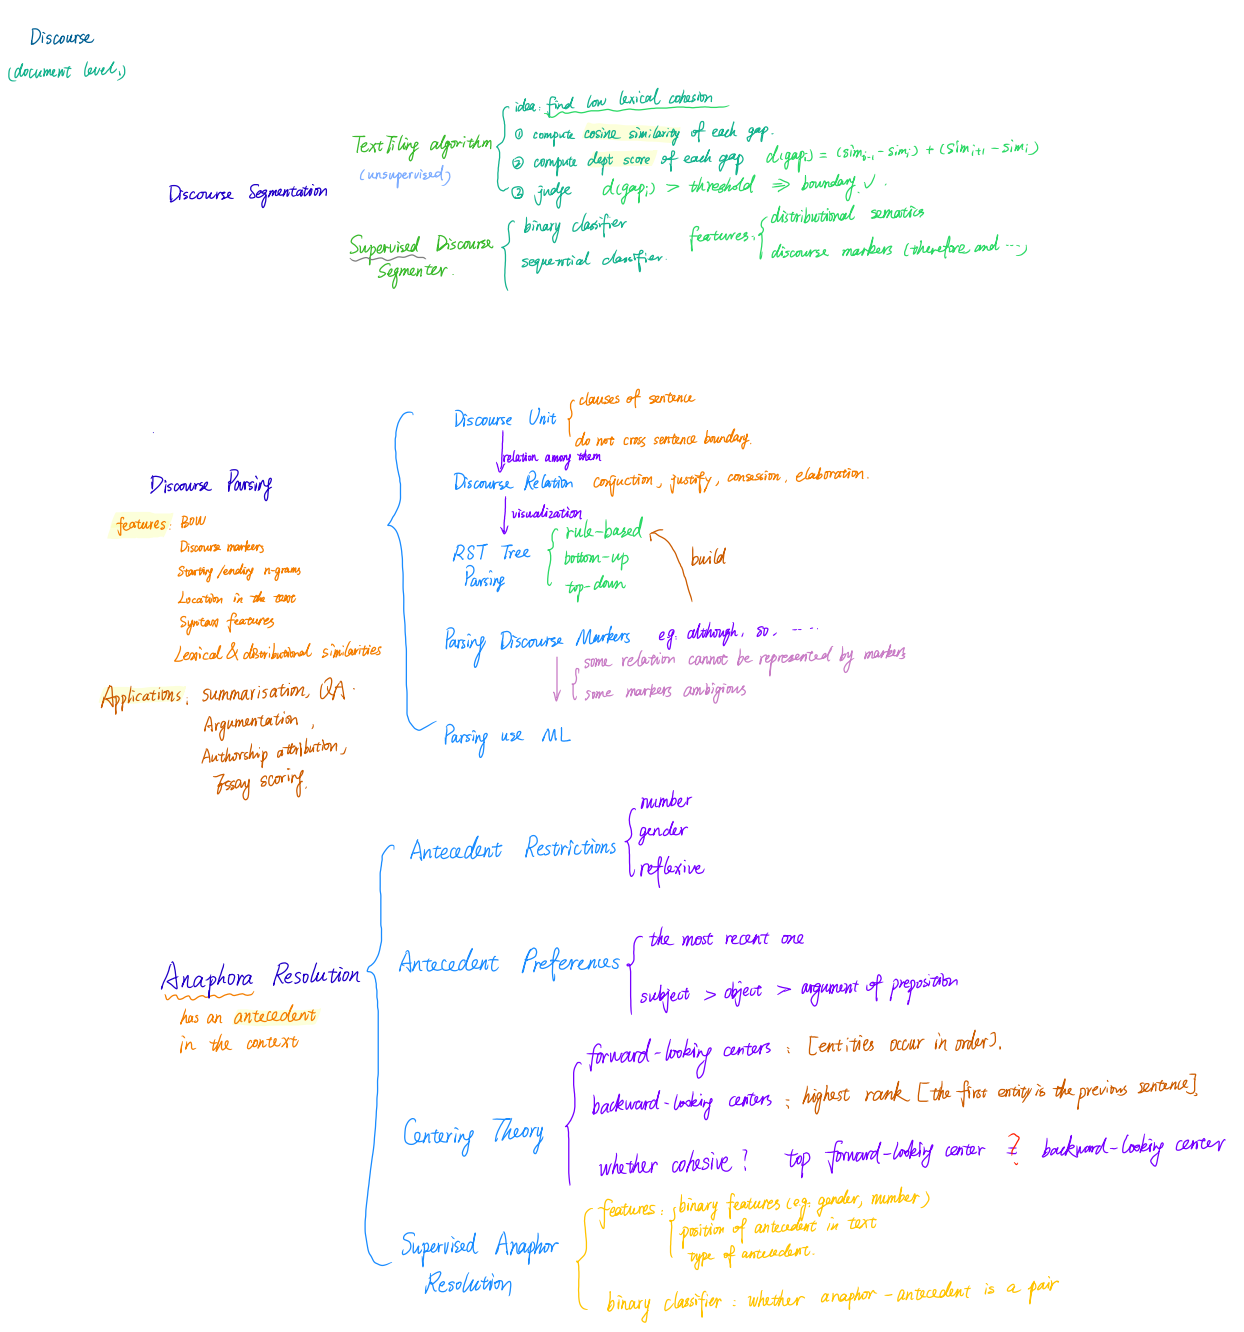 Discourse
(document level.)
Discourse Segmentation
TextTiling algorithm
(unsupervised)
idea: find low lexical cohesion
① compute cosine similarity of each gap.
② compute dept score of each gap d(gapi) = (simi-1 - simi) + (simi+1 - simi)
③ judge d(gapi) > threshold ⇒ boundary ✓.
Supervised Discourse
Segmenter.
binary classifier
sequential classifier.
features:
distributional sematics
discourse markers (therefore and ...)
Discourse Parsing
features: BOW
Discourse markers
Starting/ending n-grams
Location in the text
Syntax features
Lexical & distributional similarities
Applications: summarisation, QA.
Argumentation,
Authorship attribution,
Essay scoring.
Discourse Unit
clauses of sentence
do not cross sentence boundary.
relation among them
Discourse Relation conjuction, justify, consession, elaboration.
visualization
RST Tree
Parsing
rule-based
bottom-up
top-down
build
Parsing Discourse Markers eg. although, so, ....
some relation cannot be represented by markers
some markers ambigious
Parsing use ML
Anaphora Resolution
has an antecedent
in the context
Antecedent Restrictions
number
gender
reflexive
Antecedent Preferences
the most recent one
subject > object > argument of preposition
Centering Theory
forward-looking centers: [entities occur in order].
backward-looking centers: highest rank [the first entity is the previous sentence].
whether cohesive? top forward-looking center ?= backward-looking center
Supervised Anaphor
Resolution
features: binary features (eg. gender, number)
position of antecedent in text
type of antecedent.
binary classifier: whether anaphor-antecedent is a pair